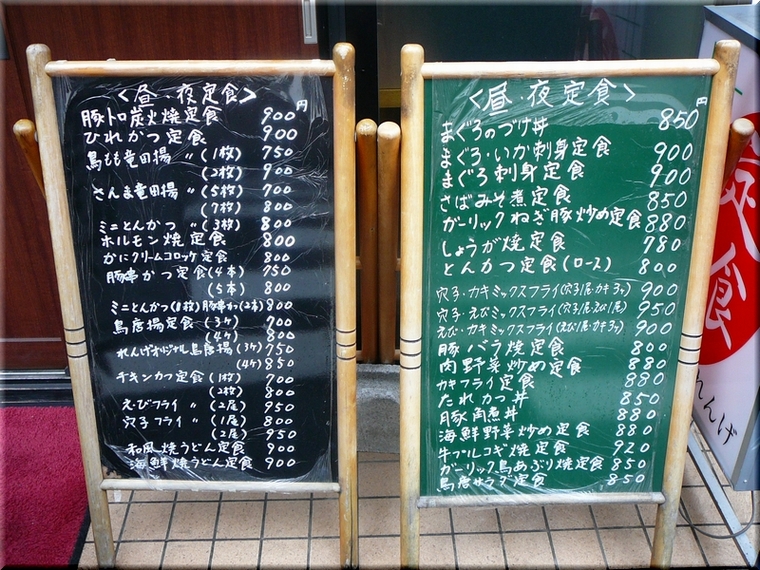 <昼・夜定食>
円
豚トロ炭火焼定食 900
ひれかつ定食 900
鳥もも竜田揚 〃 (1枚) 750
(2枚) 900
さんま竜田揚 〃 (5枚) 700
(7枚) 800
ミニとんかつ 〃 (3枚) 800
ホルモン焼定食 800
かにクリームコロッケ定食 800
豚串かつ定食(4本) 750
(5本) 800
ミニとんかつ(1枚)豚串かつ(2本) 800
鳥唐揚定食(3ケ) 700
(4ケ) 800
れんげオリジナル鳥唐揚(3ケ) 750
(4ケ) 850
チキンカツ定食(1枚) 700
(2枚) 800
えびフライ 〃 (2尾) 950
穴子フライ 〃 (1尾) 800
(2尾) 950
和風焼うどん定食 900
海鮮焼うどん定食 900
<昼・夜定食>
円
まぐろのづけ丼 850
まぐろ・いか刺身定食 900
まぐろ刺身定食 900
さばみそ煮定食 850
ガーリックねぎ豚炒め定食 880
しょうが焼定食 780
とんかつ定食(ロース) 800
穴子・カキミックスフライ(穴子1尾・カキ3ケ) 900
穴子・えびミックスフライ(穴子1尾・えび1尾) 950
えび・カキミックスフライ(えび1尾・カキ3ケ) 900
豚バラ焼定食 800
肉野菜炒め定食 880
カキフライ定食 880
たれかつ丼 850
豚角煮丼 880
海鮮野菜炒め定食 880
牛プルコギ焼定食 920
ガーリック鳥あぶり焼定食 850
鳥唐サラダ定食 850
定食
れんげ